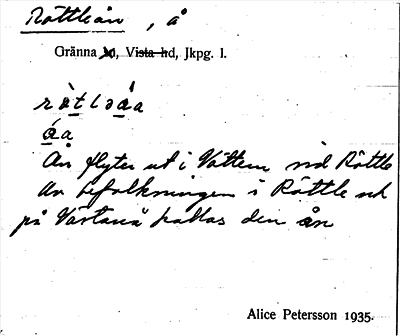 Röttleån, å
Gränna sn, Vista hd, Jkpg. l.
rö̀tləáa
áa
Ån flyter ut i Vättern vid Röttle
Av befolkningen i Röttle och
på Västanå kallas den ån
Alice Petersson 1935.